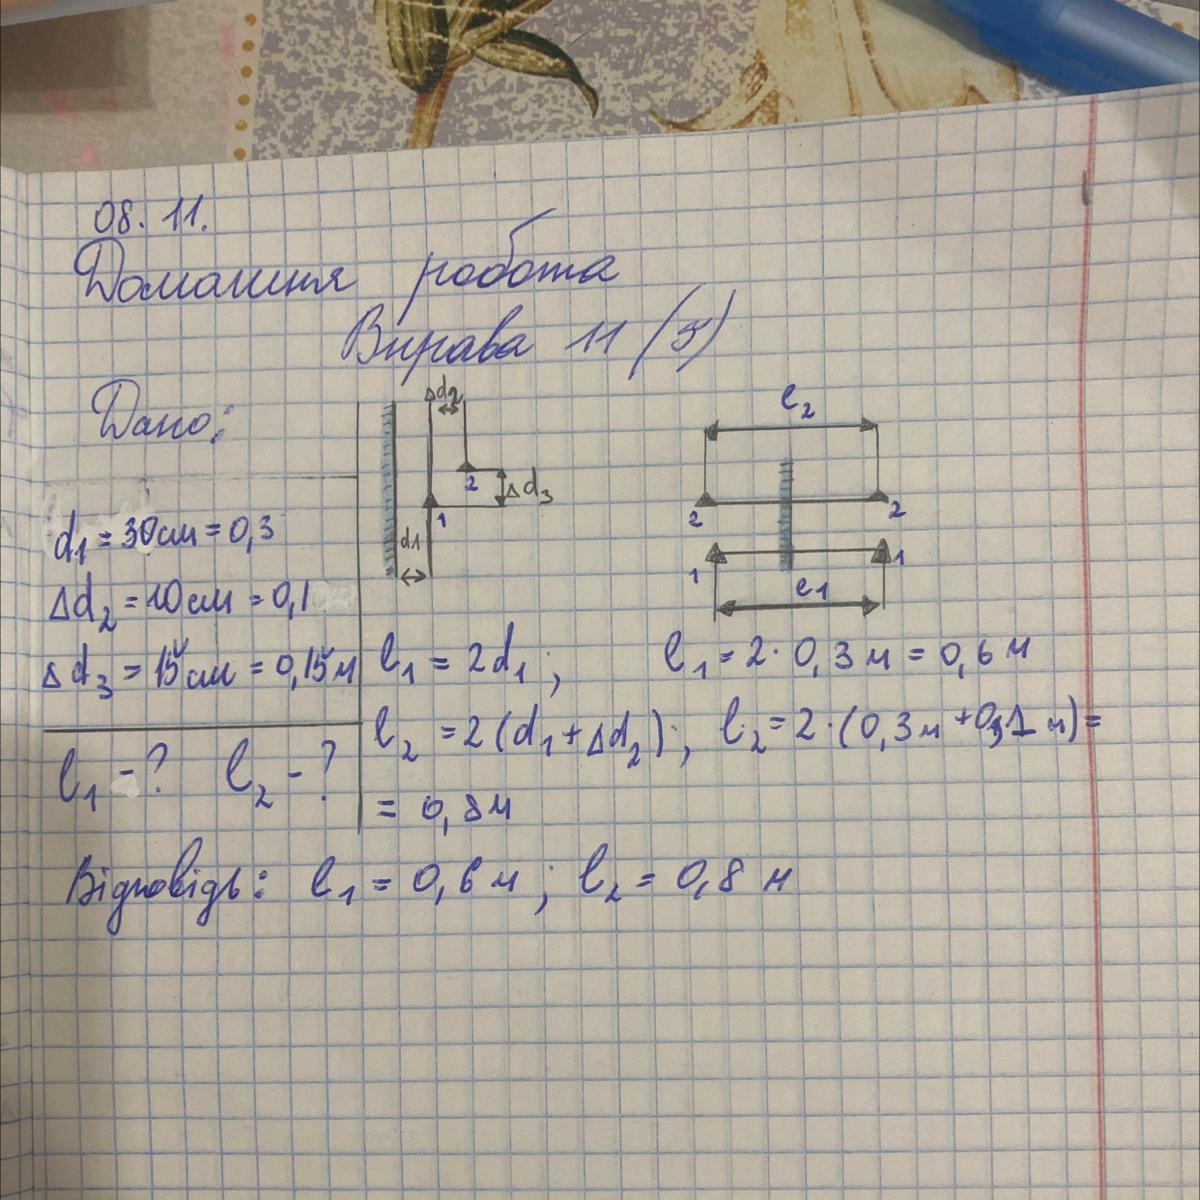 08. 11.
Домашня робота
Вправа 11 (5)
Дано:
d1 = 30см = 0,3
Δd2 = 10см = 0,1
Δd3 = 15см = 0,15м
l1 - ? l2 - ?
Δd2
2
Δd3
1
d1
l2
2 2
1 1
l1
l1 = 2d1; l1 = 2 · 0,3м = 0,6м
l2 = 2(d1 + Δd2); l2 = 2·(0,3м + 0,1м) =
= 0,8м
Відповідь: l1 = 0,6м; l2 = 0,8м